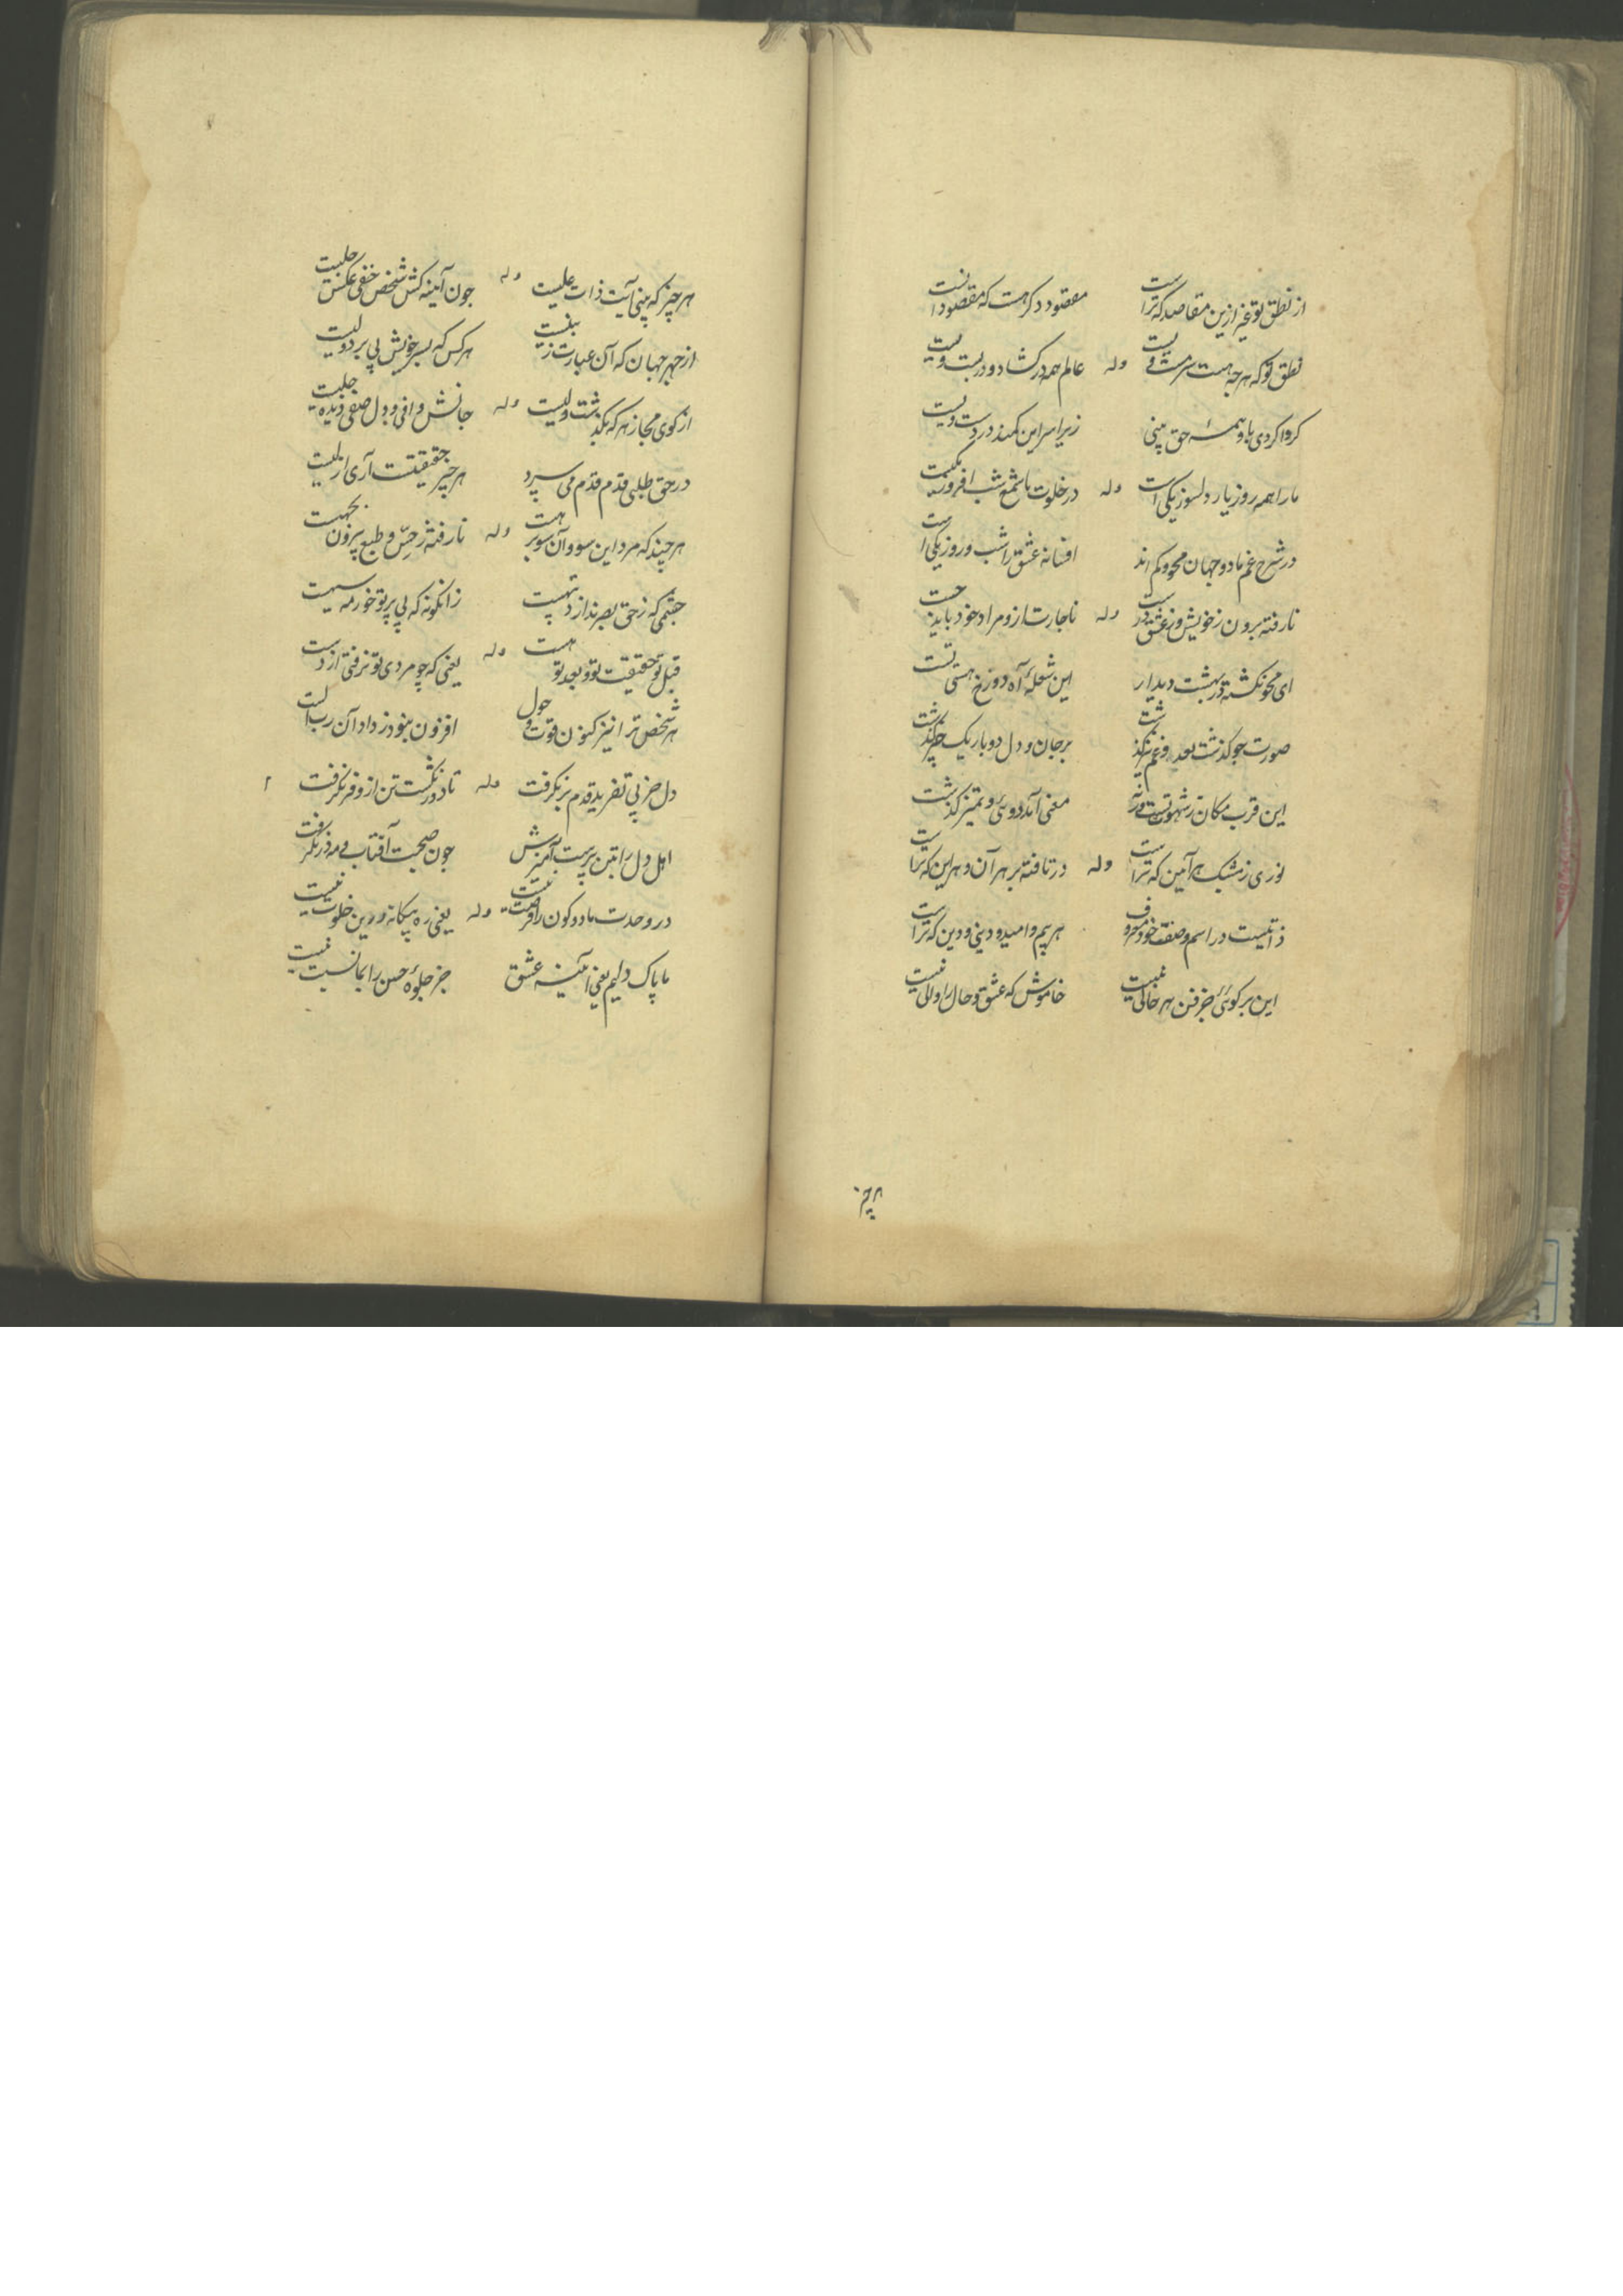 از نطق تو غیر ازین مقاصد که تراست مقصود دکر هست که مقصود آنست
نطق تو که هرچه هست سر مست ویست وله عالم همه در کشاد و در بست ویست
کر واکردی باو همه حق بینی زیرا سر این کمند در دست ویست
ما را همه روز یار دلسوز یکی است وله در خلوت ما شمع شب افروز یکیست
در شرح غم ما دو جهان محو و کم اند افسانه عشق را شب و روز یکی است
نارفته برون ز خویش وز عشق درست وله ناچار تو را ز مراد خود باید جست
ای محو نکشته در بهشت دیدار این شعلهٔ آه دوزخ هستی تست
صورت چو کذشت بعد و غم نکذشت بر جان و دل دو بار یک نکذشت
این قرب مکان ز شهوتست ورنه معنی آمد دوئی و تمییز کذشت
نوری ز مشبک هر آیین که تراست وله در تافته بر هر آن و هر این که تراست
ذاتیست در اسم و صفت خود معروف هر بیم و امید و دنیی و دین که تراست
این بر کوئی جز فن هر خالی نیست خاموش که عشق و حال را والی نیست
هرچیز
هر چیز که بینی آیت ذات علیست وله چون آینه کش شخص خفی عکس جلیست
از جهر جهان که آن عبارت ز نبیست هر کس که بسر خویش پی برد ولیست
از کوی مجاز هر که بکذشت ولیست وله جانش وافی و دل صفی دیده جلیست
در حق طلبی قدم قدم می سپرد هر چیز حقیقتست آری ازلیست
هر چند که مرد این سو و آن سو بر هست وله نارفته ز حسّ و طبع بیرون بجهت
چشمی که ز حق بصر ندارد تهیست زانکونه که بی پرتو خور مه سیهست
قبل تو حقیقت تو و بعد تو هست وله یعنی که چو مردی تو نرفتی از دست
هر شخص ترا نیز کنون قوت و حول افزون نبود ز داد آن رب الست
دل جز پی تفرید قدم بر نکرفت وله تا دور نکشت تن ازو فر نکرفت
اهل دل را بتن پرست آمیزش چون صحبت آفتاب و مه در نکرفت
در وحدت ما دو کون را فرصت نیست وله یعنی ره بیکانه درین خلوت نیست
ما پاک دلیم یعنی آئینه عشق جز جلوهٔ حسن را بما نسبت نیست